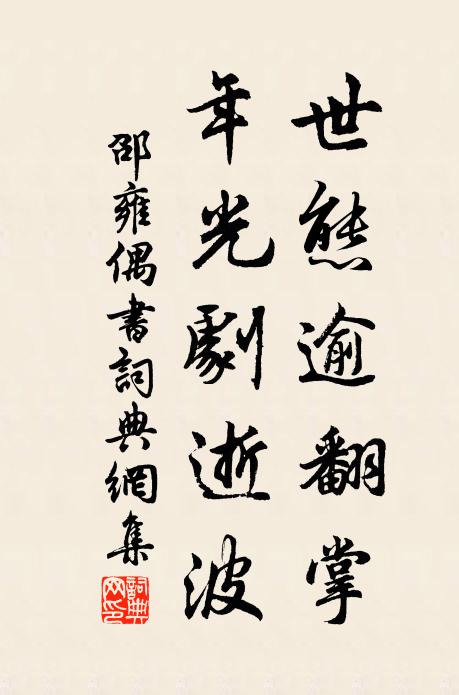 世態逾翻掌
年光劇逝波
邵雍偶書詞典網集
詞典网印